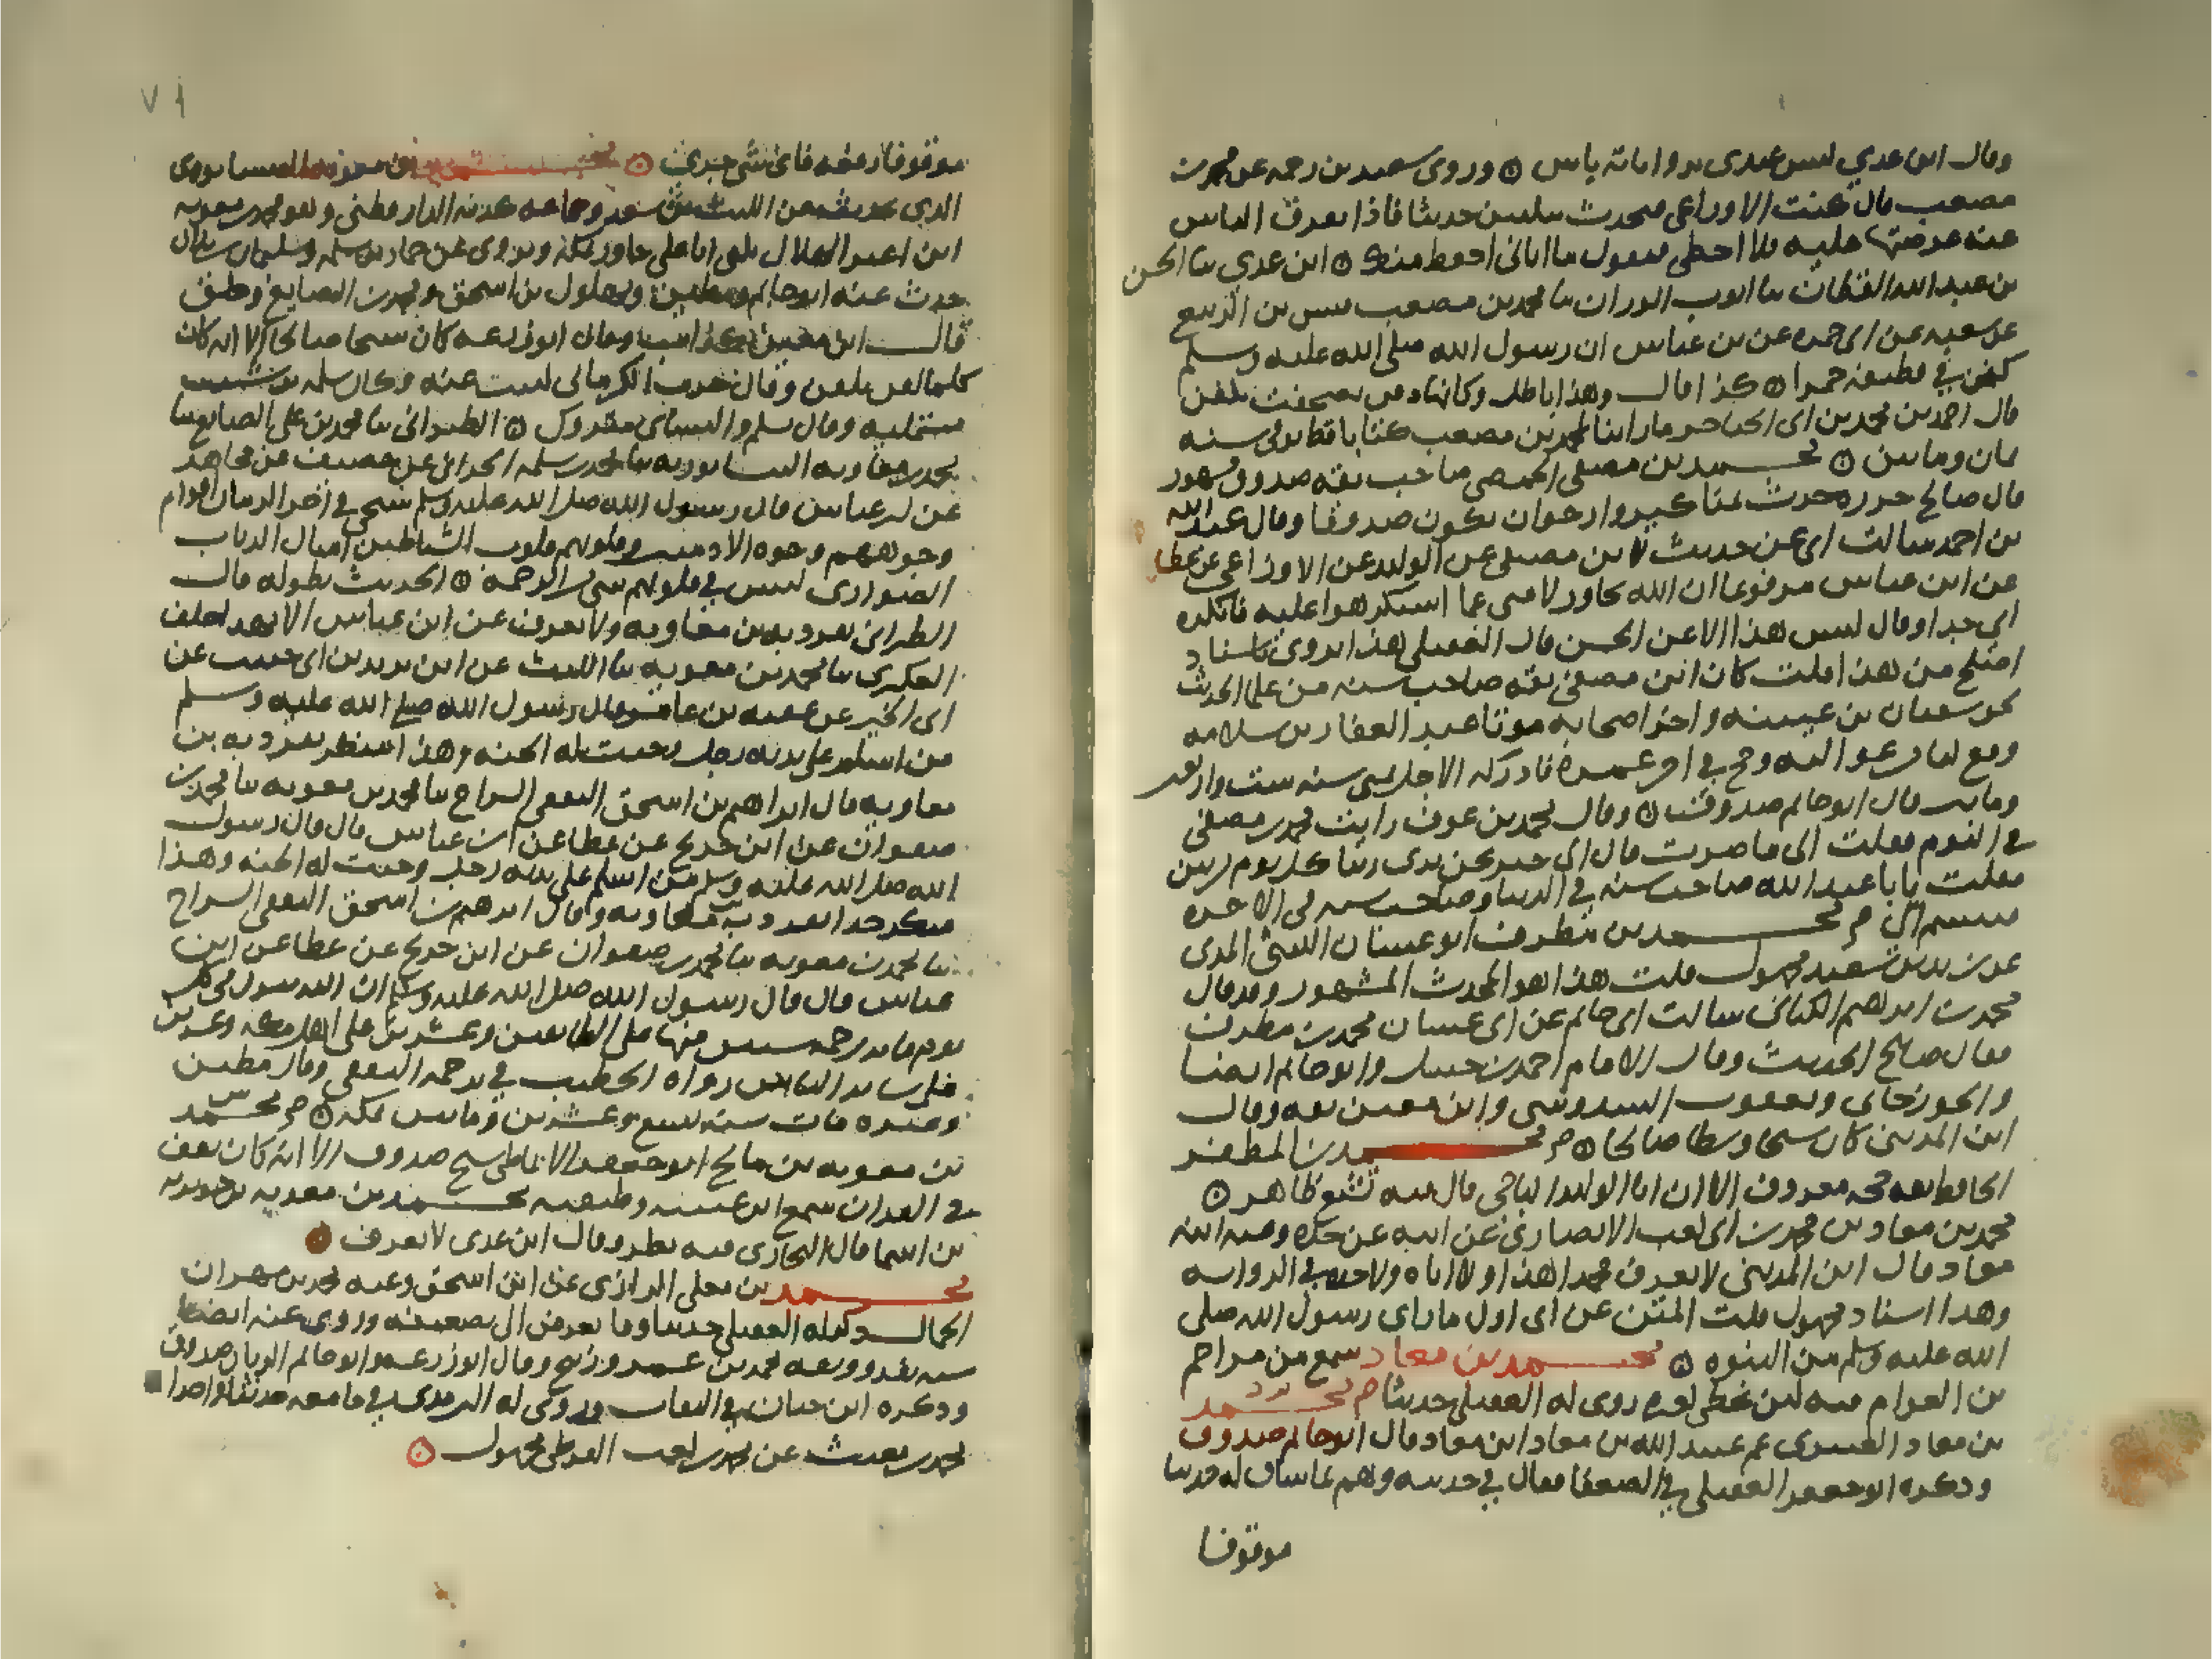 وقال ابن عدي ليس عندي برواياته باس ⊙ وروى سعيد بن رحمه عن محمد بن
مصعب قال كنت الاوزاعي محدث بثلثين حديثا فاذا تفرق الناس
عنه عرضتها عليه فلا اخطي فيقول ما اتاني احفظ منك ⊙ ابن عدي ثنا الحسن
بن عبد الله القطان ثنا ايوب الوزان ثنا محمد بن مصعب ثنا قيس بن الربيع
عن شعبه عن ابي حمزه عن بن عباس ان رسول الله صلى الله عليه وسلم
كفن في قطيفه حمرا ⊙ كذا قال وهذا باطل وكانها دفن تصحفت بكفن
قال احمد بن محمد بن ابي الحناجر ما راينا لمحمد بن مصعب كتابا قط توفي سنه
ثمان ومايتين ⊙ محمد بن مصفى الحمصي صاحب بقيه صدوق مشهور
قال صالح جزره حدث بمناكير وارجوا ان يكون صدوقا وقال عبد الله
بن احمد سالت ابي عن حديث لابن مصفى عن الوليد عن الاوزاعي عن عطا
عن ابن عباس مرفوعا ان الله تجاوز لامتي عما استكرهوا عليه فانكره
ابي جدا وقال ليس هذا الا عن الحسن قال العقيلي هذا يروى باسناد
اصلح من هذا قلت كان ابن مصفى ثقه صاحب سنه من علما الحديث
نحو سفيان بن عيينه واخر اصحابه موتا عبد الغفار بن سلامه
وحج في اخر عمره فادركه الاجل بمنى سنه ست واربعين
ومايتين قال ابو حاتم صدوق ⊙ وقال محمد بن عوف رايت محمد بن مصفى
في النوم فقلت الى ما صرت قال الى خير نحن نرى ربنا كل يوم مرتين
فقلت يا با عبد الله صاحب سنه في الدنيا وصاحب سنه في الاخره
فتبسم الي محمد بن مطرف ابو غسان الليثي المدني
مجهول قلت هذا هو المحدث المشهور وقد قال
محمد بن ابراهيم الكناني سالت ابي حاتم عن ابي غسان محمد بن مطرف
فقال صالح الحديث وقال الامام احمد بن حنبل وابو حاتم ايضا
والجوزجاني ويعقوب السدوسي وابن معين ثقه وقال
ابن المديني كان شيخا وسطا صالحا ⊙ محمد بن المظفر
الحافظ ثقه حجه معروف الا ان ابا الوليد الباجي قال فيه تشيع ظاهر ⊙
محمد بن معاذ بن محمد بن ابي بن كعب الانصاري عن ابيه عن جده وعنه ابنه
معاذ قال ابن المديني لا نعرف محمدا هذا ولا اباه ولا جده في الروايه
وهذا اسناد مجهول قلت المتن عن ابي اول ما راى رسول الله صلى
الله عليه وسلم من النبوه ⊙ محمد بن معاذ سمع من مزاحم
بن العوام فيه لين روى له العقيلي حديثا محمد
بن معاذ العنبري عم عبيد الله بن معاذ ابن معاذ قال ابو حاتم صدوق
وذكره ابو جعفر العقيلي في الضعفا فقال في حديثه وهم ثم ساق له حديثا
موقوفا
٧١
موقوفا رفعه فاي شي جرى ⊙ محمد بن معويه النيسابوري
الذي حديثه عن الليث بن سعد وجماعه كذبه الدارقطني وهو محمد بن معويه
ابن اعين الهلالي يكنى ابا علي جاور بمكه ويروي عن حماد بن سلمه وسليمان بن بلال
حدث عنه ابو حاتم ومطين وبهلول بن اسحق ومحمد بن الصايغ وخلق
قال ابن معين كذاب وقال ابو زرعه كان شيخا صالحا الا انه كان
كلما لقن يلقن وقال حرب الكرماني كتبت عنه وكان سلمه بن شبيب
مستمليه وقال مسلم والنسائي متروك ⊙ الطبراني ثنا محمد بن علي الصايغ ثنا
محمد بن معاويه النيسابوري ثنا محمد بن سلمه الحراني عن خصيف عن مجاهد
عن ابن عباس قال رسول الله صلى الله عليه وسلم سيجي في اخر الزمان اقوام
وجوههم وجوه الادميين وقلوبهم قلوب الشياطين امثال الذياب
الضواري ليس في قلوبهم شي من الرحمه ⊙ الحديث بطوله قال
الطبراني تفرد به بن معاويه ولا يعرف عن ابن عباس الا بهذا خلف
العكبري ثنا محمد بن معويه ثنا الليث عن ابن يزيد بن ابي حبيب عن
ابي الخير عن عقبه بن عامر قال رسول الله صلى الله عليه وسلم
من اسلم على يديه رجل وجبت له الجنه وهذا منكر تفرد به بن
معاويه قال ابراهيم بن اسحق الثقفي السراج ثنا محمد بن معويه ثنا محمد بن
صفوان عن ابن جريج عن عطا عن ابن عباس قال قال رسول
الله صلى الله عليه وسلم من اسلم على يديه رجل وجبت له الجنه وهذا
منكر جدا تفرد به بن معاويه وقال ابراهيم بن اسحق الثقفي السراج
ثنا محمد بن معويه ثنا محمد بن صفوان عن ابن جريج عن عطا عن ابن
عباس قال قال رسول الله صلى الله عليه وسلم ان الله ينزل في كل
يوم مايه رحمه ستين منها على الطايفين وعشرين على اهل مكه وعشرين
على ساير الناس رواه الخطيب في ترجمه الثقفي وقال مطين
وغيره مات سنه تسع وعشرين ومايتين بمكه ⊙ محمد
بن معويه بن مالج ابو جعفر الانماطي شيخ صدوق الا انه كان يقف
في القران سمع ابن عيينه وطبقته محمد بن معويه
بن اسما قال البخاري فيه نظر وقال ابن عدي لا يعرف ⊙
محمد بن معلى الرازي عن ابن اسحق وعنه محمد بن مهران
الجمال ذكره العقيلي وما تعرض الى تضعيفه وروى عنه ايضا
ووثقه محمد بن عمرو زنيج وقال ابو زرعه وابو حاتم الرازيان صدوق
وذكره ابن حبان في الثقات وروى له الترمذي في جامعه حديثا واحدا
محمد بن مغيث عن محمد بن كعب القرظي مجهول ⊙